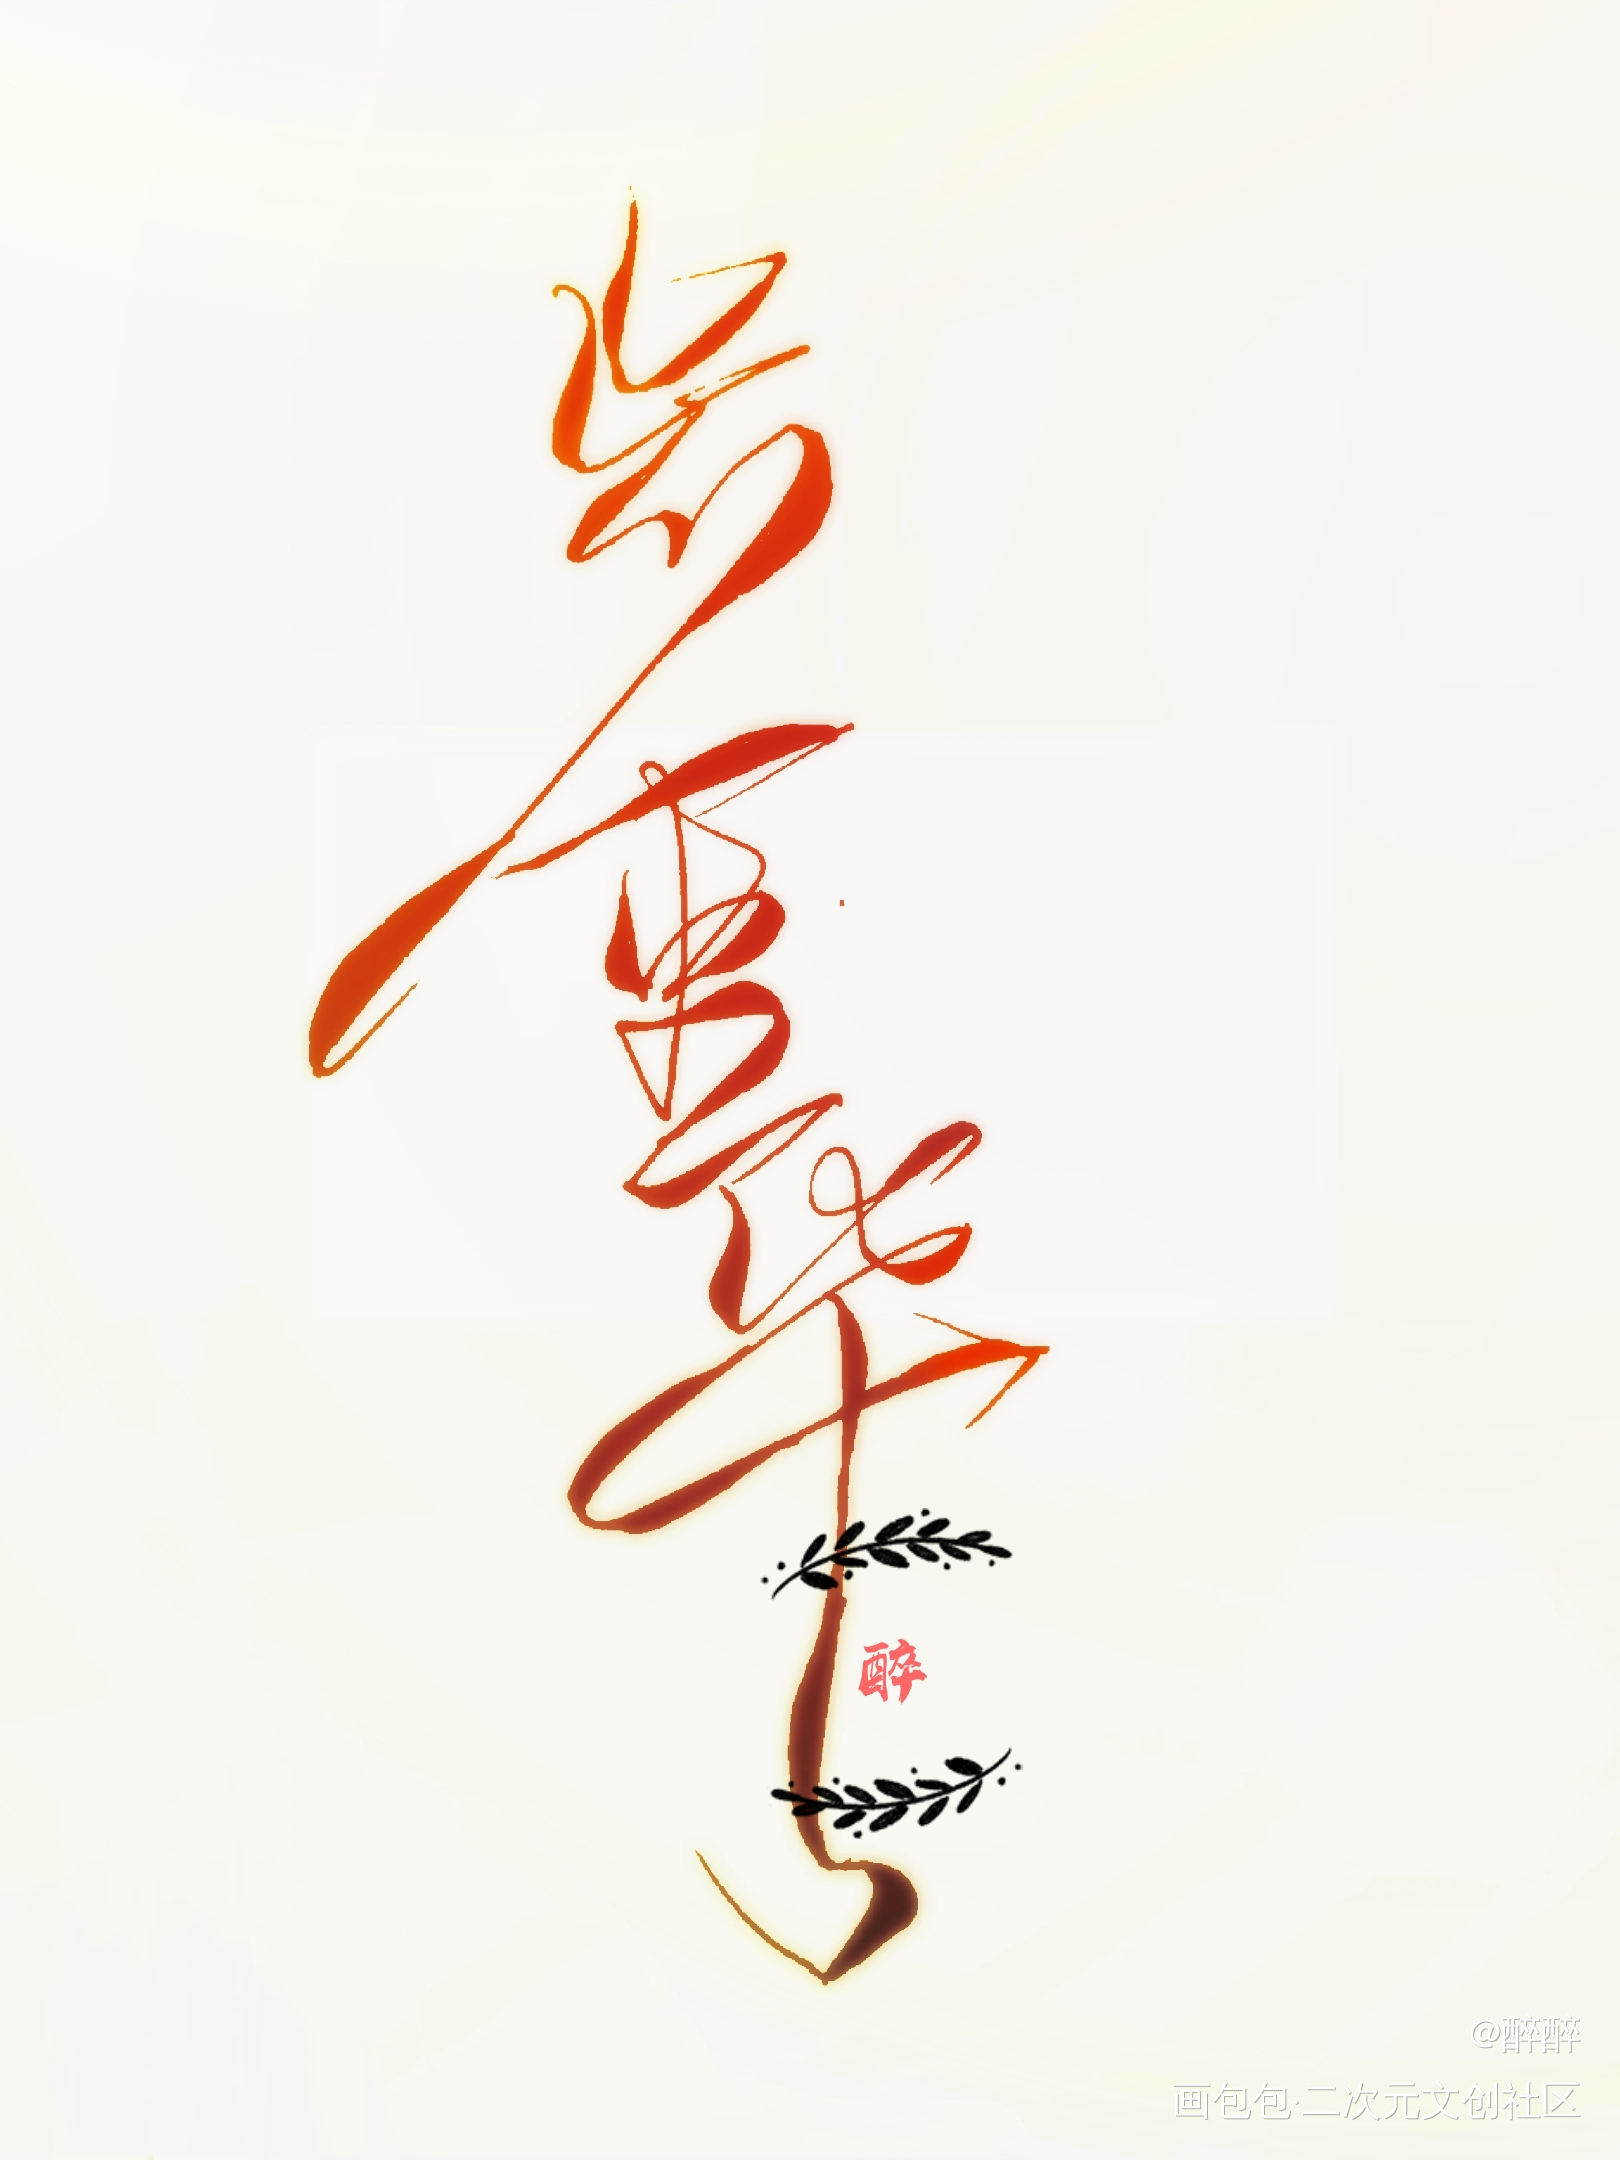 岁重华
醉
@醉醉
画包包·二次元文创社区